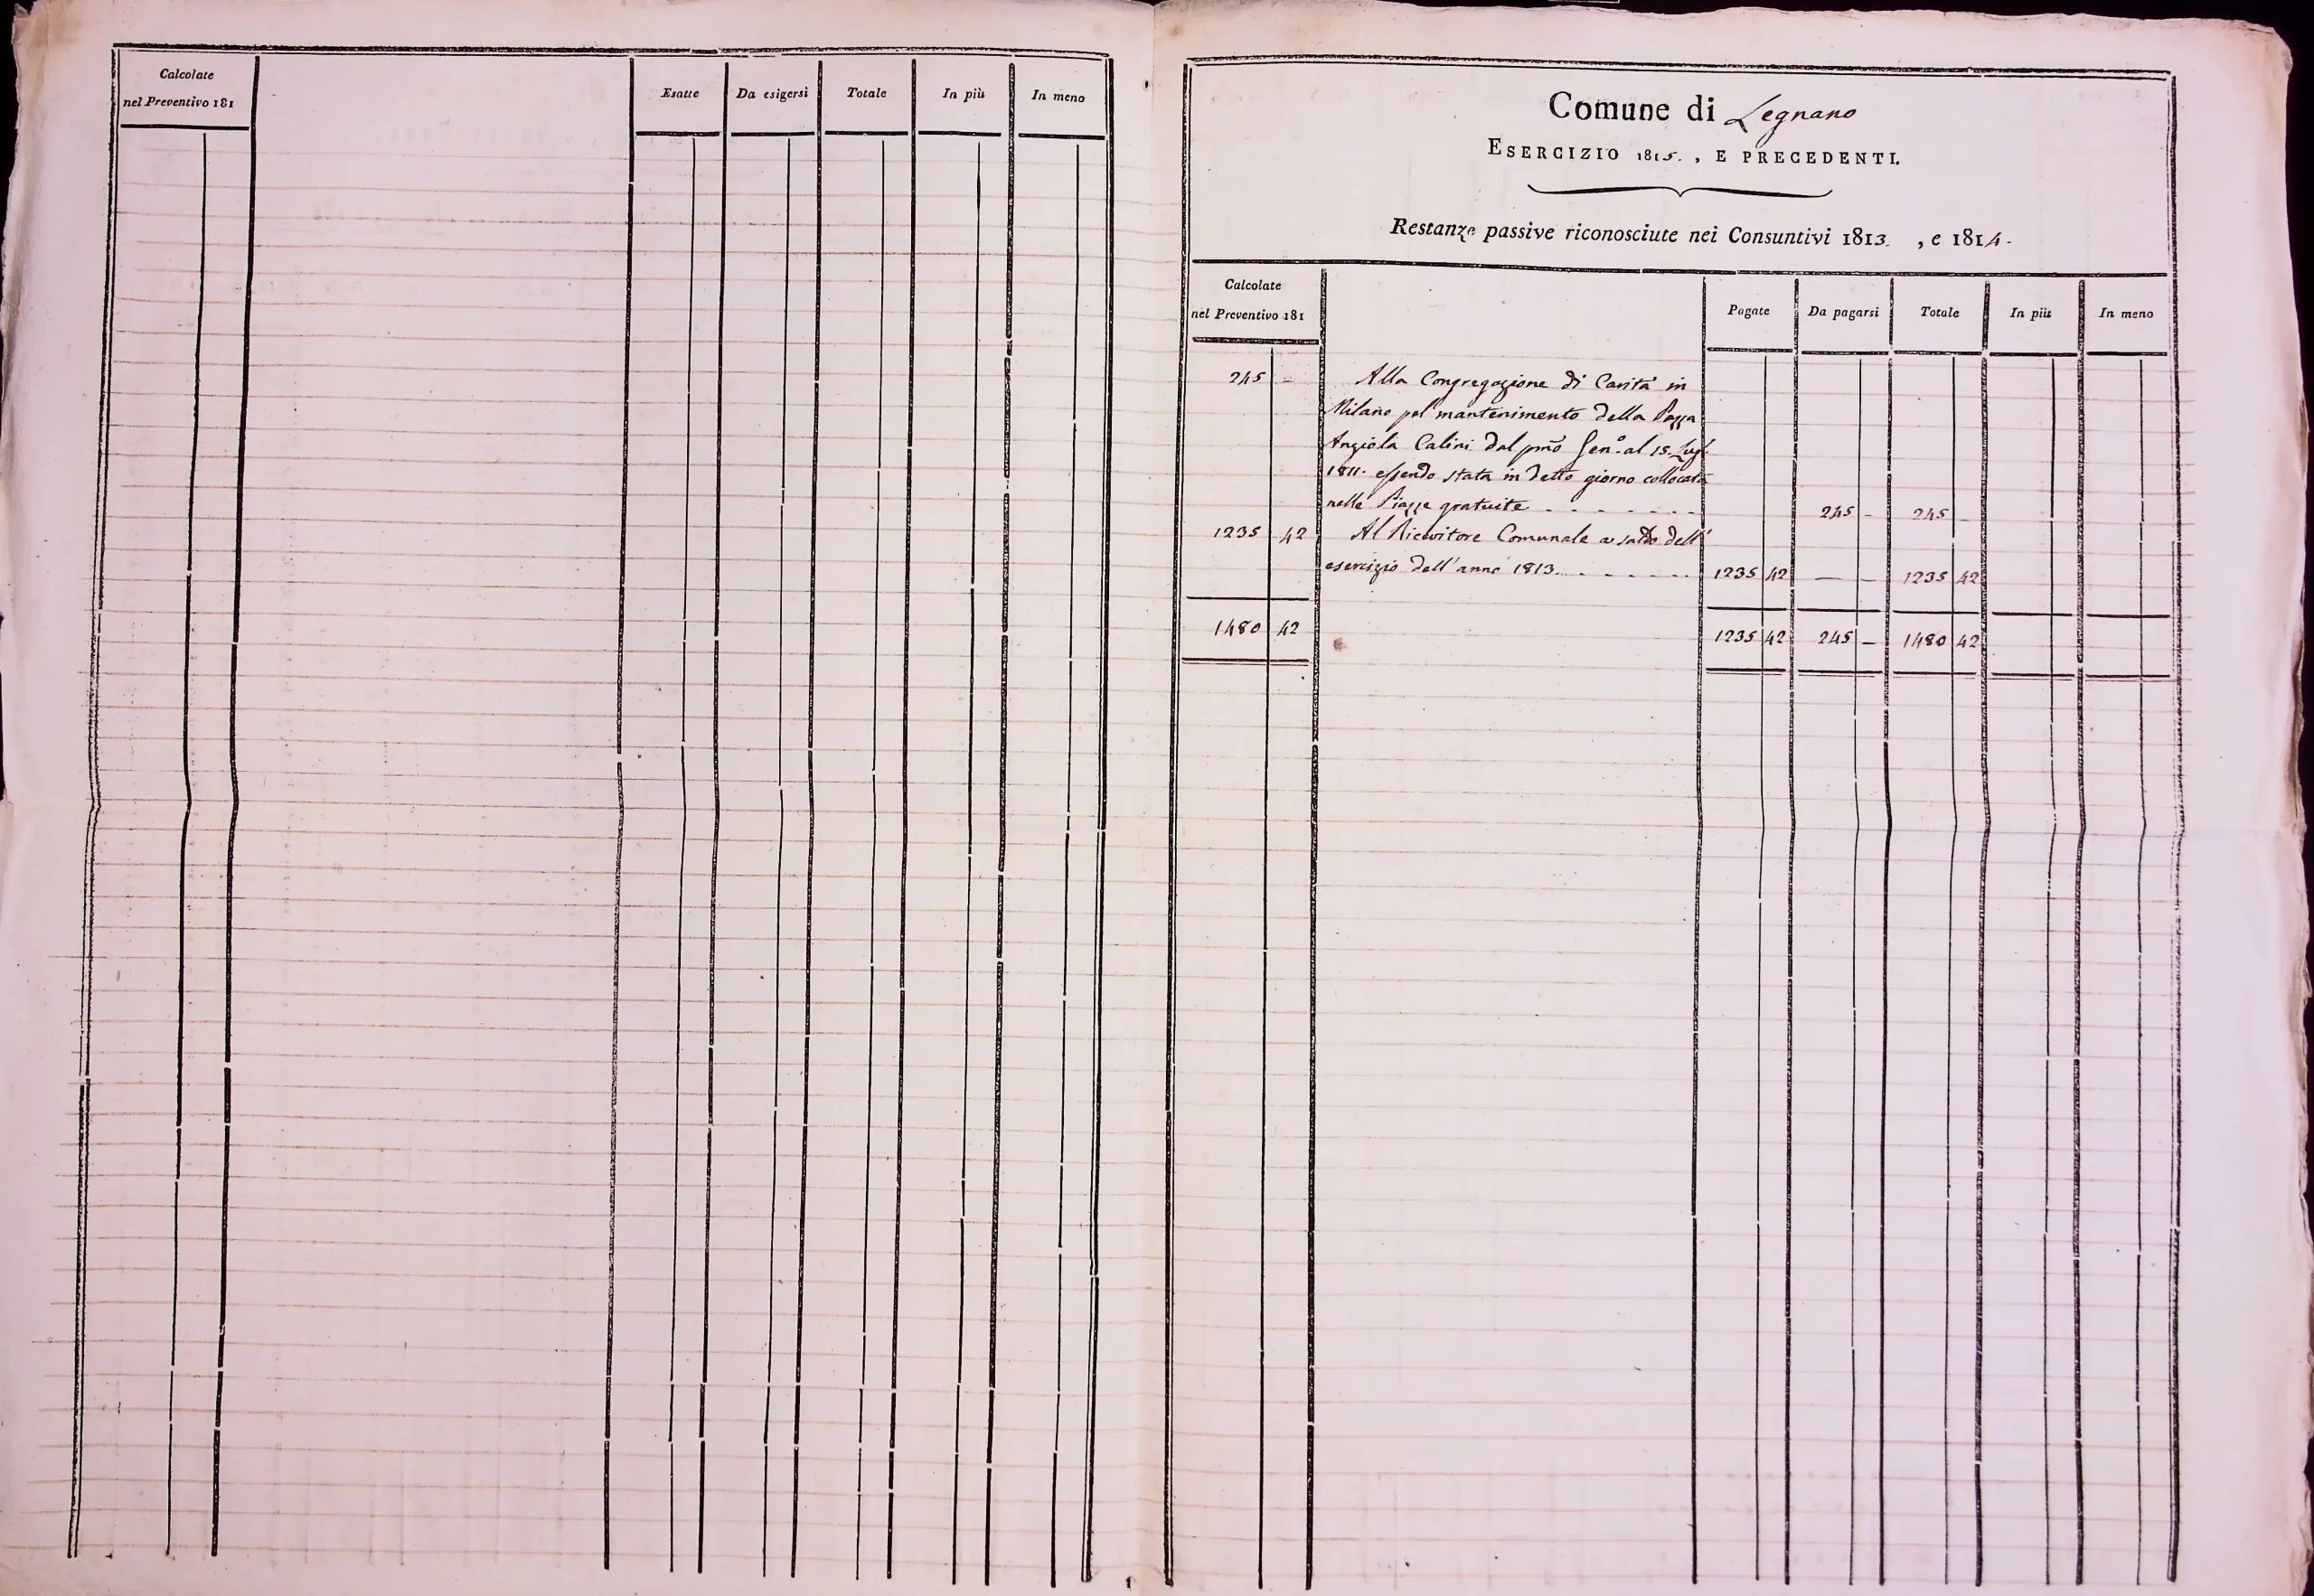 Calcolate
nel Preventivo 181
Esatte
Da esigersi
Totale
In più
In meno
Comune di Legnano
ESERCIZIO 1815. , E PRECEDENTI.
Restanze passive riconosciute nei Consuntivi 1813. , e 1814.
Calcolate
nel Preventivo 181
Pagate
Da pagarsi
Totale
In più
In meno
245 - Alla Congregazione di Carità in
Milano pel mantenimento della Pazza
Angiola Calini dal pmo Gen.o al 15. Lugl.
1811. essendo stata in detto giorno collocata
nelle Piazze gratuite . . . . . . . 245 - 245 -
1235 42 Al Ricevitore Comunale a saldo dell'
esercizio dell'anno 1813. . . . . . . . 1235 42 — - 1235 42
1480 42 1235 42 245 - 1480 42